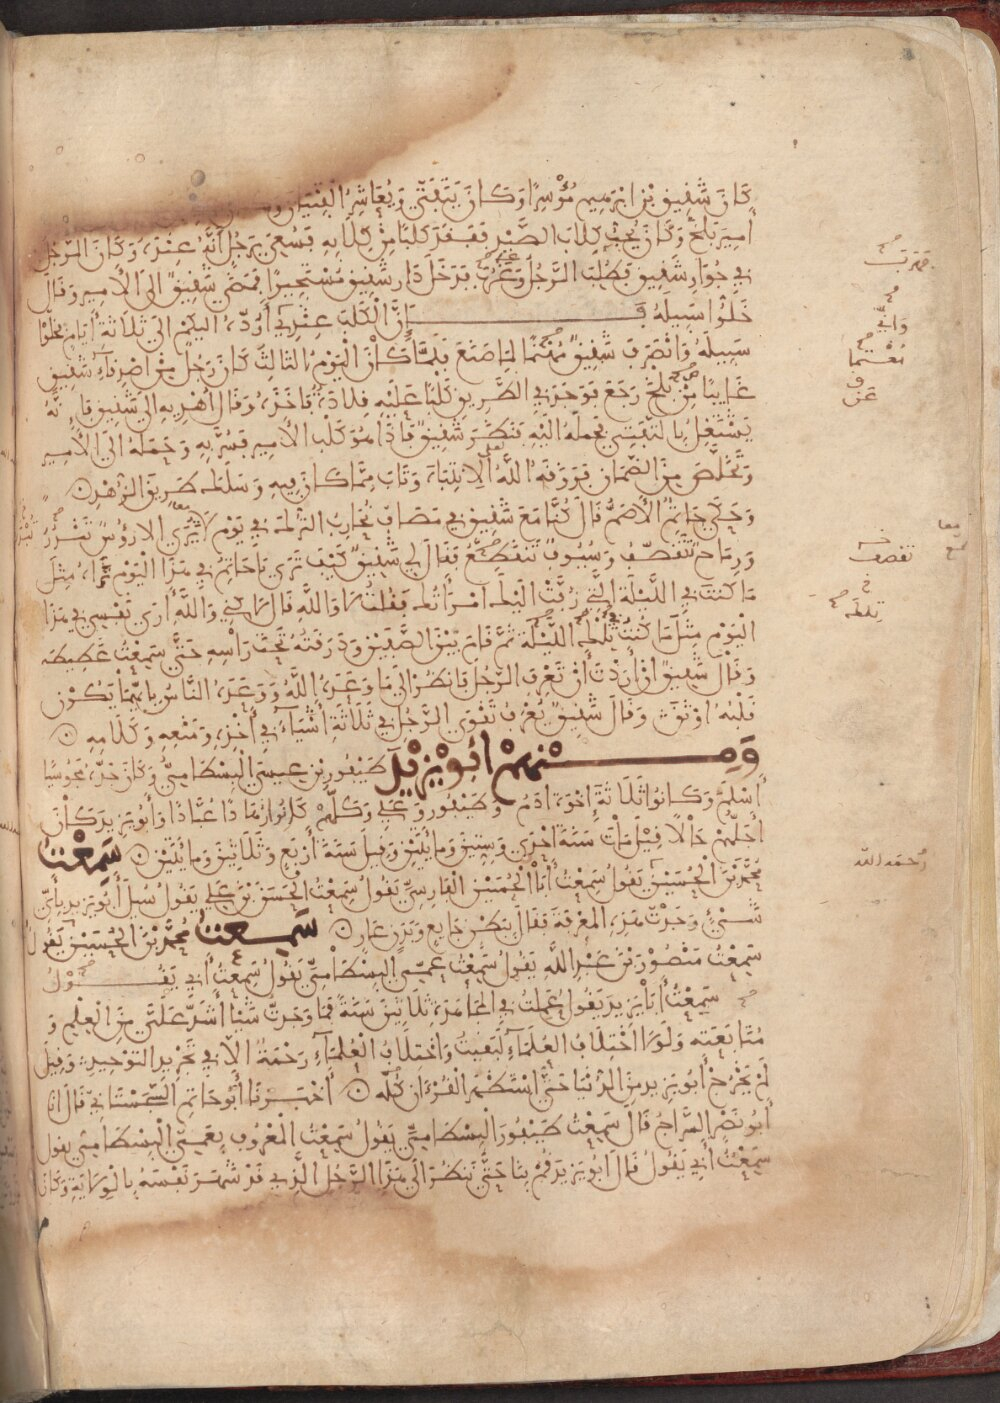 كَانَ شَفِيقُ بْنُ ابْرَهِيمَ مُوْسِرًا وَكَانَ يَتَفَتَّى وَيُعَاشِرُ الْفِتْيَانَ
أَمِيرَ بَلْخَ وَكَانَ يُحِبُّ كِلَابَ الصَّيْدِ فَفَقَدَ كَلْبًا مِنْ كِلَابِهِ فَسُعِيَ بِرَجُلٍ أَنَّهُ عِنْدَهُ وَكَانَ الرَّجُلُ
فِي جِوَارِ شَفِيقٍ فَطُلِبَ الرَّجُلُ فَدَخَلَ دَارَ شَفِيقٍ مُسْتَجِيرًا فَمَضَى شَفِيقٌ الَى الْأَمِيرِ وَقَالَ
خَلُّوا سَبِيلَهُ فَإِنَّ الْكَلْبَ عِنْدِي أَرُدُّهُ الَيْكُمْ الَى ثَلَاثَةِ أَيَّامٍ فَخَلَّوْا
سَبِيلَهُ وَانْصَرَفَ شَفِيقٌ مُهْتَمًّا لِمَا صَنَعَ فَلَمَّا كَانَ الْيَوْمُ الثَّالِثُ كَانَ رَجُلٌ مِنْ اصْدِقَاءِ شَفِيقٍ
غَايِبًا مِنْ بَلْخَ رَجَعَ فَوَجَدَ فِي الطَّرِيقِ كَلْبًا عَلَيْهِ قِلَادَةٌ فَاخَذَهُ وَقَالَ أُهْدِيهِ الَى شَفِيقٍ فَإِنَّهُ
يَشْتَغِلُ بِالتَّفَتِّي فَحَمَلَهُ الَيْهِ فَنَظَرَ شَفِيقٌ فَاذَا هُوَ كَلْبُ الْأَمِيرِ فَسُرَّ بِهِ وَحَمَلَهُ الَى الْأَمِيرِ
وَتَخَلَّصَ مِنَ الضَّمَانِ فَرَزَقَهُ اللَّهُ الِانْتِبَاهَ وَتَابَ مِمَّا كَانَ فِيهِ وَسَلَكَ طَرِيقَ الزُّهْدِ
وَحَكَى حَاتِمُ الْأَصَمُّ قَالَ كُنَّا مَعَ شَفِيقٍ فِي مَصَافٍّ نُحَارِبُ التُّرْكَ فِي يَوْمٍ لَا يُرَى الَّا رُؤُسٌ تَنْدُرُ
وَرِمَاحٌ تَقَصَّفُ وَسُيُوفٌ تَنْقَطِعُ فَقَالَ لِي شَفِيقٌ كَيْفَ تَرَى يَا حَاتِمُ فِي هَذَا الْيَوْمِ تَرَاهُ مِثْلَ
مَا كُنْتَ فِي اللَّيْلَةِ الَّتِي زُفَّتْ الَيْكَ امْرَأَتُكَ فَقُلْتُ لَا وَاللَّهِ قَالَ لَكِنِّي وَاللَّهِ أَرَى نَفْسِي فِي هَذَا
الْيَوْمِ مِثْلَ مَا كُنْتُ تِلْكَ اللَّيْلَةَ ثُمَّ قَامَ بَيْنَ الصَّفَّيْنِ وَدَرَقَتُهُ تَحْتَ رَأْسِهِ حَتَّى سَمِعْتُ غَطِيطَهُ
وَقَالَ شَفِيقٌ اذَا أَرَدْتَ أَنْ تَعْرِفَ الرَّجُلَ فَانْظُرْ الَى مَا وَعَدَهُ اللَّهُ وَوَعَدَهُ النَّاسُ بِايِّهِمَا يَكُونُ
قَلْبُهُ اوْثَقَ وَقَالَ شَفِيقٌ يُعْرَفُ تَقْوَى الرَّجُلِ فِي ثَلَاثَةِ أَشْيَاءَ فِي أَخْذِهِ وَمَنْعِهِ وَكَلَامِهِ
وَمِنْهُمْ ابُو يَزِيدَ طَيْفُورُ بْنُ عِيسَى الْبِسْطَامِيُّ وَكَانَ جَدُّهُ مَجُوسِيًّا
أَسْلَمَ وَكَانُوا ثَلَاثَةَ إِخْوَةٍ آدَمُ وَطَيْفُورُ وَعَلِي وَكُلُّهُمْ كَانُوا زُهَّادًا عُبَّادًا وَأَبُو يَزِيدَ كَانَ
أَجَلَّهُمْ حَالًا قِيلَ مَاتَ سَنَةَ احْدَى وَسِتِّينَ وَمِايَتَيْنِ وَقِيلَ سَنَةَ أَرْبَعٍ وَثَلَاثِينَ وَمِايَتَيْنِ سَمِعْتُ
مُحَمَّدَ بْنَ الْحُسَيْنِ يَقُولُ سَمِعْتُ أَبَا الْحُسَيْنِ الْفَارِسِيَّ يَقُولُ سَمِعْتُ الْحَسَنَ بْنَ عَلِي يَقُولُ سُئِلَ أَبُو يَزِيدَ بِأَيِّ
شَيْءٍ وَجَدْتَ هَذِهِ الْمَعْرِفَةَ فَقَالَ بِبَطْنٍ جَايِعٍ وَبَدَنٍ عَارٍ سَمِعْتُ مُحَمَّدَ بْنَ الْحُسَيْنِ يَقُولُ
سَمِعْتُ مَنْصُورَ بْنَ عَبْدِ اللَّهِ يَقُولُ سَمِعْتُ عَمِّيَ الْبِسْطَامِيَّ يَقُولُ سَمِعْتُ أَبِي يَقُولُ
سَمِعْتُ أَبَا يَزِيدَ يَقُولُ عَمِلْتُ فِي الْمُجَاهَدَةِ ثَلَاثِينَ سَنَةً فَمَا وَجَدْتُ شَيْئًا أَشَدَّ عَلَيَّ مِنَ الْعِلْمِ وَ
مُتَابَعَتِهِ وَلَوْلَا اخْتِلَافُ الْعُلَمَاءِ لَبَقِيتُ وَاخْتِلَافُ الْعُلَمَاءِ رَحْمَةٌ الَّا فِي تَجْرِيدِ التَّوْحِيدِ وَقِيلَ
لَمْ يَخْرُجْ أَبُو يَزِيدَ مِنَ الدُّنْيَا حَتَّى اسْتَظْهَرَ الْقُرْءَانَ كُلَّهُ أَخْبَرَنَا أَبُو حَاتِمٍ السِّجِسْتَانِي قَالَ انَا
أَبُو نَصْرٍ السَّرَّاجُ قَالَ سَمِعْتُ طَيْفُورَ الْبِسْطَامِيَّ يَقُولُ سَمِعْتُ الْمَعْرُوفَ بِعَمِّيَ الْبِسْطَامِيِّ يَقُولُ
سَمِعْتُ أَبِي يَقُولُ قَالَ أَبُو يَزِيدَ قُمْ بِنَا حَتَّى نَنْظُرَ الَى هَذَا الرَّجُلِ الَّذِي قَدْ شَهَرَ نَفْسَهُ بِالْوِلَايَةِ وَكَانَ
تقصف
رحمه الله